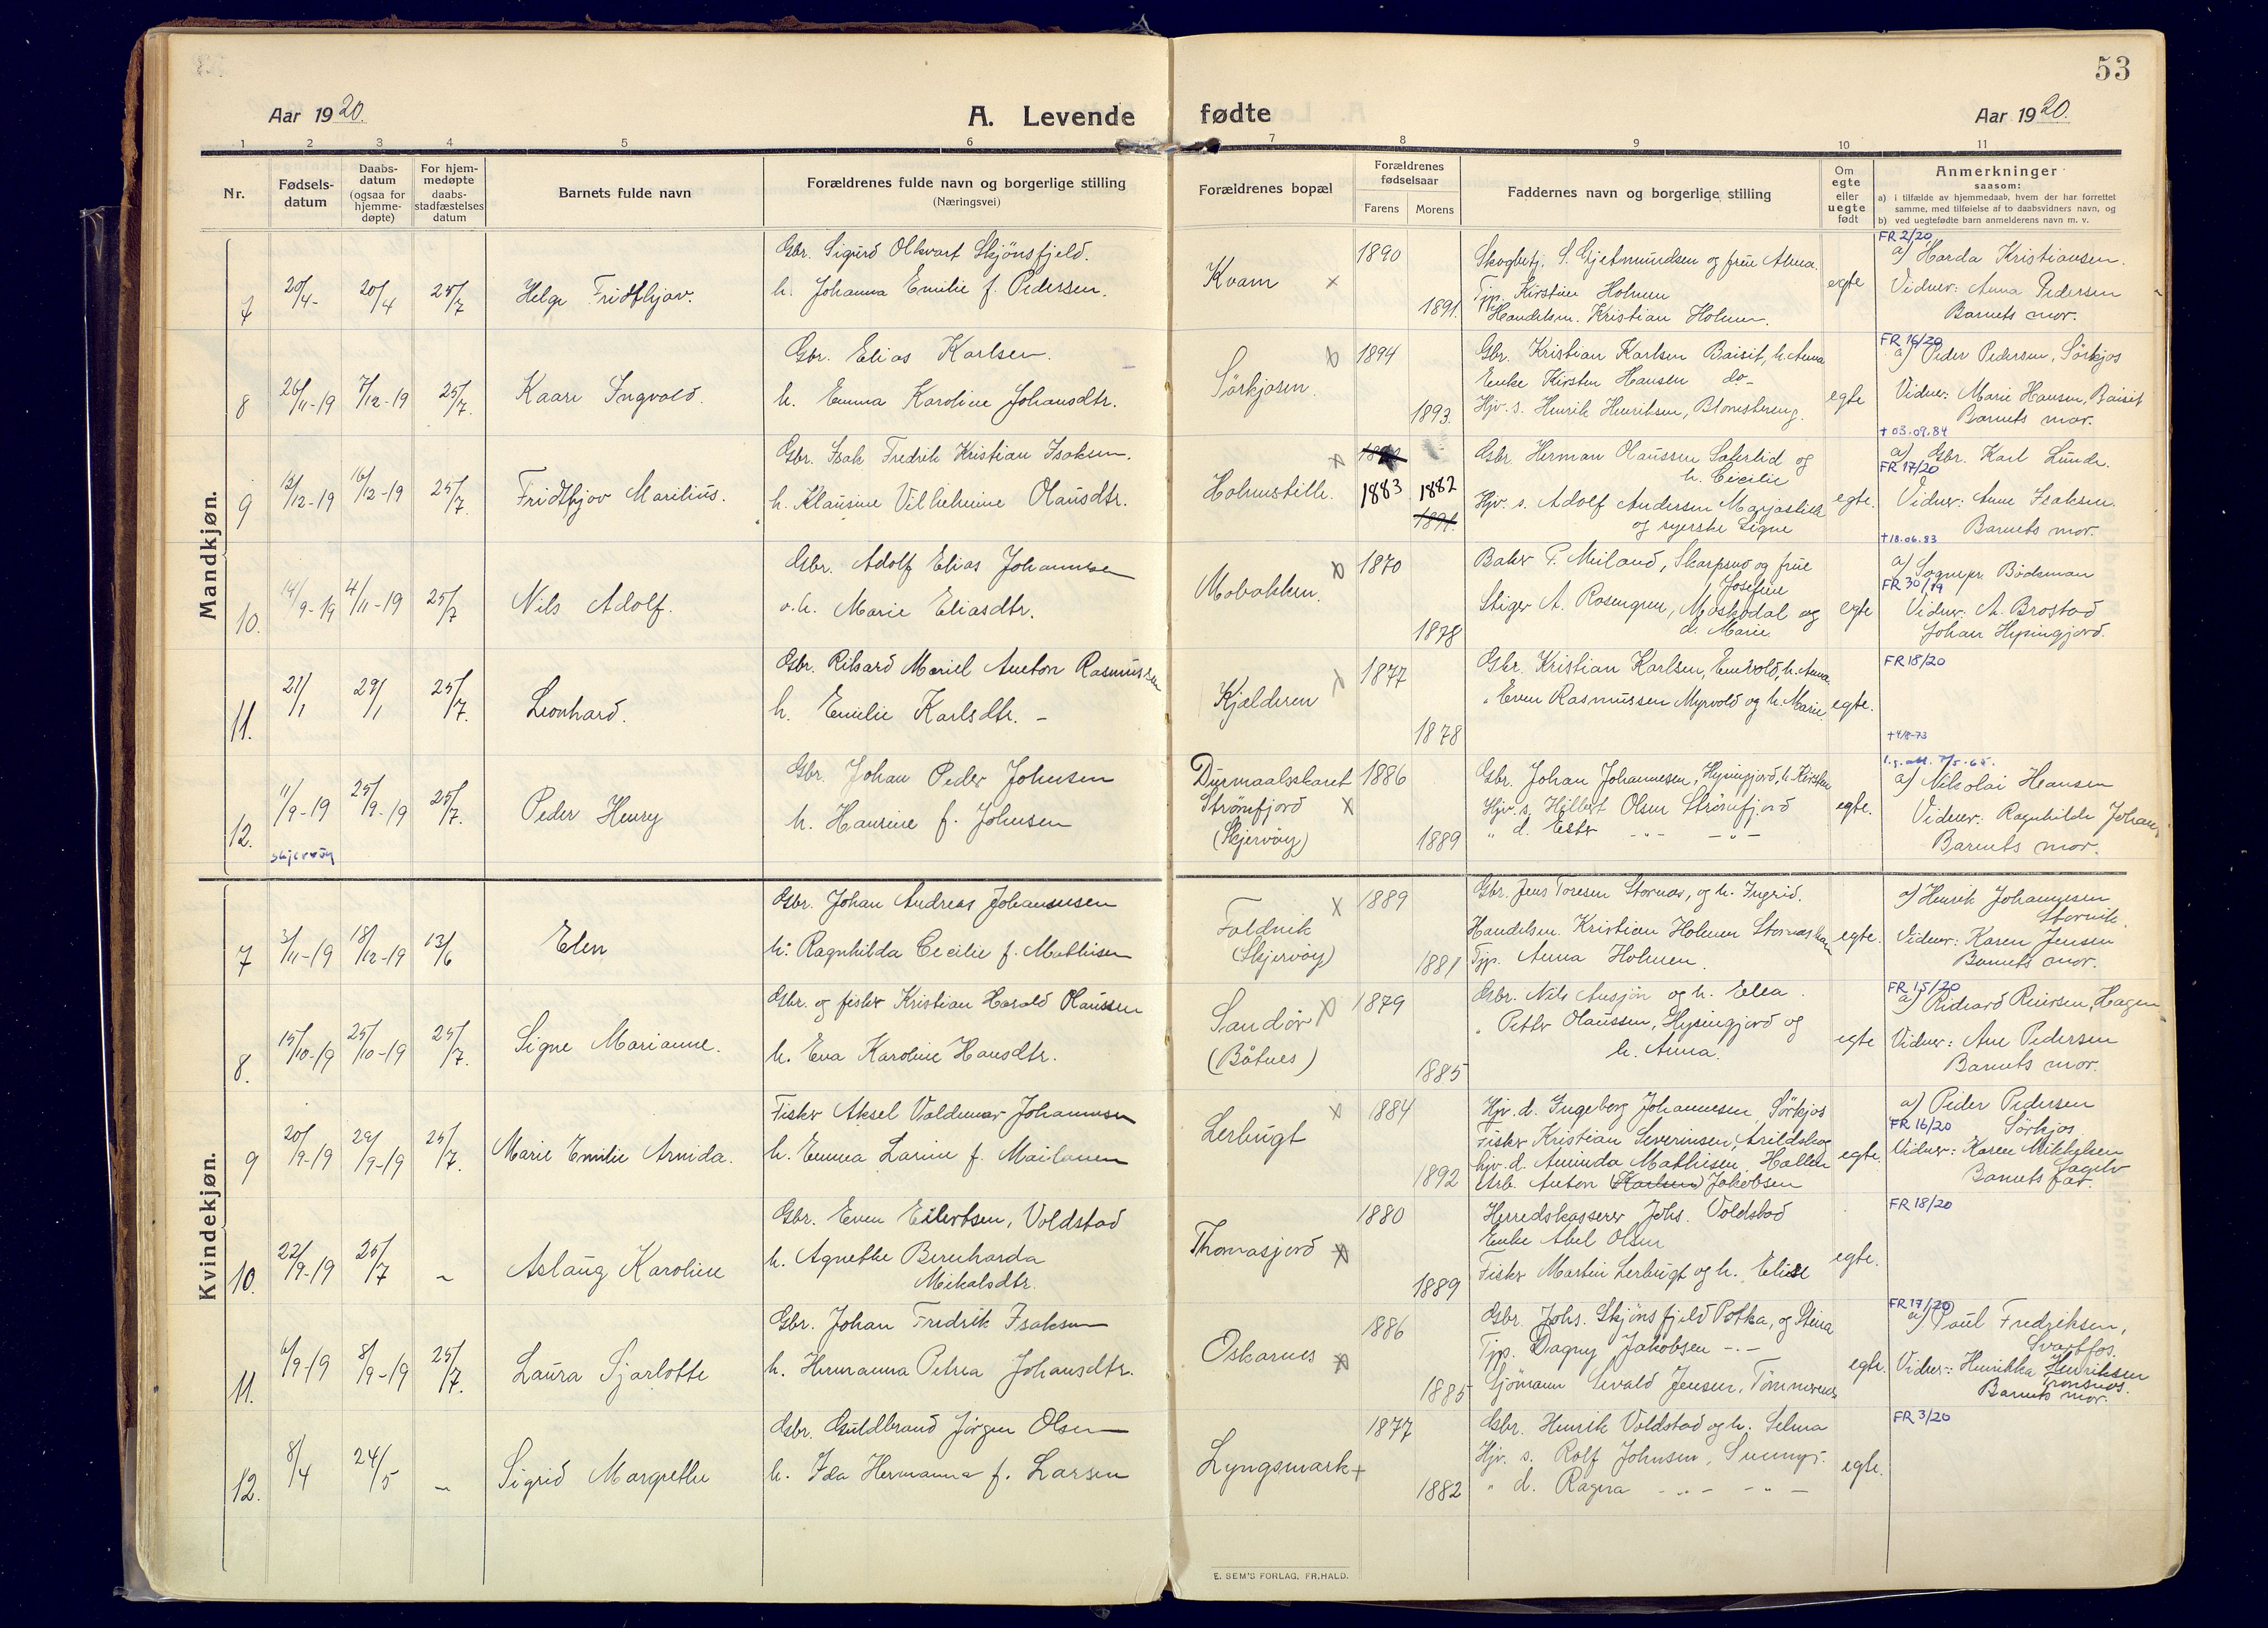 53
Aar 1920.
A. Levende fødte
Aar 1920.
1 2 3 4 5 6 7 8 9 10 11
Nr.
Fødsels-datum
Daabs-datum (ogsaa for hjemme-døpte)
For hjem-medøpte daabs-stadfæstelses datum
Barnets fulde navn
Forældrenes fulde navn og borgerlige stilling
(Næringsvei)
Forældrenes bopæl
Forældrenes fødselsaar
Farens Morens
Faddernes navn og borgerlige stilling
Om egte eller uegte født
Anmerkninger
saasom:
a) i tilfælde av hjemmedaab, hvem der har forrettet
samme, med tilføielse af to daabsvidners navn, og
b) ved uegtefødte barn anmelderens navn m. v.
Mandkjøn.
7 20/4- 20/4 25/7 Helge Fridthjov.
Gbr. Sigurd Olkvart Skjönsfjeld.
h. Johanna Emilie f. Pedersen.
Kvam x
1890
1891.
Skogbetj. S. Gjetmundsen og frue Alma.
Tjp. Kirstine Holmen
Handelsm. Kristian Holmen.
egte
FR 2/20
a) Harda Kristiansen.
Vidner: Anna Pedersen
Barnets mor.
8 26/11-19 7/12-19 25/7. Kaare Ingvald.
Gbr. Elias Karlsen.
h. Emma Karoline Johansdtr.
Sørkjosen.
1894
1893.
Gbr. Kristian Karlsen Baisit, h. Anna
Enke Kirsten Hansen do-
Hjv. s. Henrik Henriksen, Blomstereng.
egte
FR 16/20
a) Peder Pedersen, Sörkjos
Vidner: Marie Hansen, Baisit
Barnets mor.
† 03.09.84
9 12/12-19 16/12-19 25/7. Fridthjov Marilius.
Gbr. Isak Fredrik Kristian Isaksen.
h. Klausine Vilhelmine Olausdtr.
Holmstille.
1883 1882
1891.
Gbr. Herman Olaussen Saterlid og
h. Cecilie
Hjv. s. Adolf Andersen Marjastilch
og syerske Signe
egte.
a) Gbr. Karl Lunde.
FR 17/20
Vidner: Anne Isaksen.
Barnets mor.
† 18.06.83
10. 14/9-19 4/11-19 25/7 Nils Adolf.
Gbr. Adolf Elias Johannesen
o.h. Marie Eliasdtr.
Mobakken.
1870
1878
Baker P. Meiland, Skarpsno og frue
Josefine
Stiger A. Rosengren, Moskodal og
d. Marie.
egte
a) Sognepr. Bodsman
FR 30/19
Vidner: A. Brostad
Johan Hysingjord.
11. 21/1 29/1 25/7. Leonhard.
Gbr. Rikard Mariel Aneton Rasmussen
h. Emilie Karlsdtr. -
Kjelderen
1877
1878
Gbr. Kristian Karlsen, Eneвold, h. Anna.
" Even Rasmussen Myrvold og h. Marie
egte.
FR 18/20
† 4/8-73
12. 11/9-19 25/9-19 25/7. Peder Henry
skjervöy
Gbr. Johan Peder Johnsen
h. Hansine f. Johnsen
Durmaalsskaret
Strömfjord x
(Skjervöy)
1886
1889
Gbr. Johan Johannesen, Hysingjord, h. Kirsten
Hjv. s. Hilbert Olsen Strömfjord
" d. Ester -"- -"-
egte.
l.g. att. 7/5-65.
a) Nikolai Hansen
Vidner: Ragnhilda Johans
Barnets mor.
Kvindekjøn.
7 3/11-19 18/12-19 13/6 Elen
Gbr. Johan Andreas Johannesen
h: Ragnhilda Cecilie f. Mathisen
Foldvik x
(Skjervöy)
1889
1881
Gbr. Jens Toresen Stornæs, og h. Ingrid.
Handelsm. Kristian Holmen Stornæs
Tjp. Anna Holmen.
egte.
a) Henrik Johannesen
Storvik.
Vidner: Karen Jensen
Barnets mor.
8. 15/10-19 25/10-19 25/7. Signe Marianne.
Gbr. og fisker Kristian Harald Olaussen
h. Eva Karoline Hansdtr.
Sandör
(Båtnes)
1879
1885
Gbr. Nils Ansjön og h. Ella.
" Petter Olaussen, Hysingjord og
h. Anna.
egte
FR 15/20
a) Rikard Reiersen, Hagen
Vidner: Ane Pedersen
Barnets mor.
9 20/9-19 29/9-19 25/7. Marie Emilie Arnida.
Fisker Aksel Valdemar Johannesen
h. Emma Larine f. Mailanen
Lerbugt
1884
1892
Hjv. d. Ingeborg Johannesen Sörkjos
Fisker Kristian Severinsen, Arildskog
hjv. d. Aminda Mathisen, Hallen
Arb. Anton Karlsen Jakobsen
egte.
a) Peder Pedersen
FR 16/20 Sörkjos
Vidner: Karen Mikkelsen
Sagelv
Barnets far.
10. 22/9-19 25/7 - Aslaug Karoline
Gbr. Even Eilertsen, Voldstad
h. Agnethe Bernharda
Mikalsdtr.
Thomasjord
1880
1889
Herredskasserer Johs. Voldstad
Enke Abel Olsen
Fisker Martin Lerbugt og h. Elise
egte.
FR 18/20
11. 6/9-19 8/9-19 25/7. Laura Sjarlotte
Gbr. Johan Fredrik Isaksen
h. Hermanna Petrea Johansdtr.
Oskarnes
1886
1885
Gbr. Johs. Skjönsfjeld Potka, og Stina
Tjp. Dagny Jakobsen -"-
Sjömann Sevald Jensen, Tömmernes
egte.
FR 17/20
a) Paul Fredriksen,
Svartfos.
Vidner: Henrikka Henriksen
Grønsnes.
Barnets mor.
12. 8/4 24/5 - Sigrid Margrethe
Gbr. Guldbrand Jörgen Olsen
h. Ida Hermanna f. Larsen
Lyngsmark +
1877
1882
Gbr. Henrik Voldstad og h. Selma
Hjv. s. Rolf Johnsen,
" d. Ragna -"- -"-
egte.
FR 3/20
E. SEM'S FORLAG, FR.HALD.